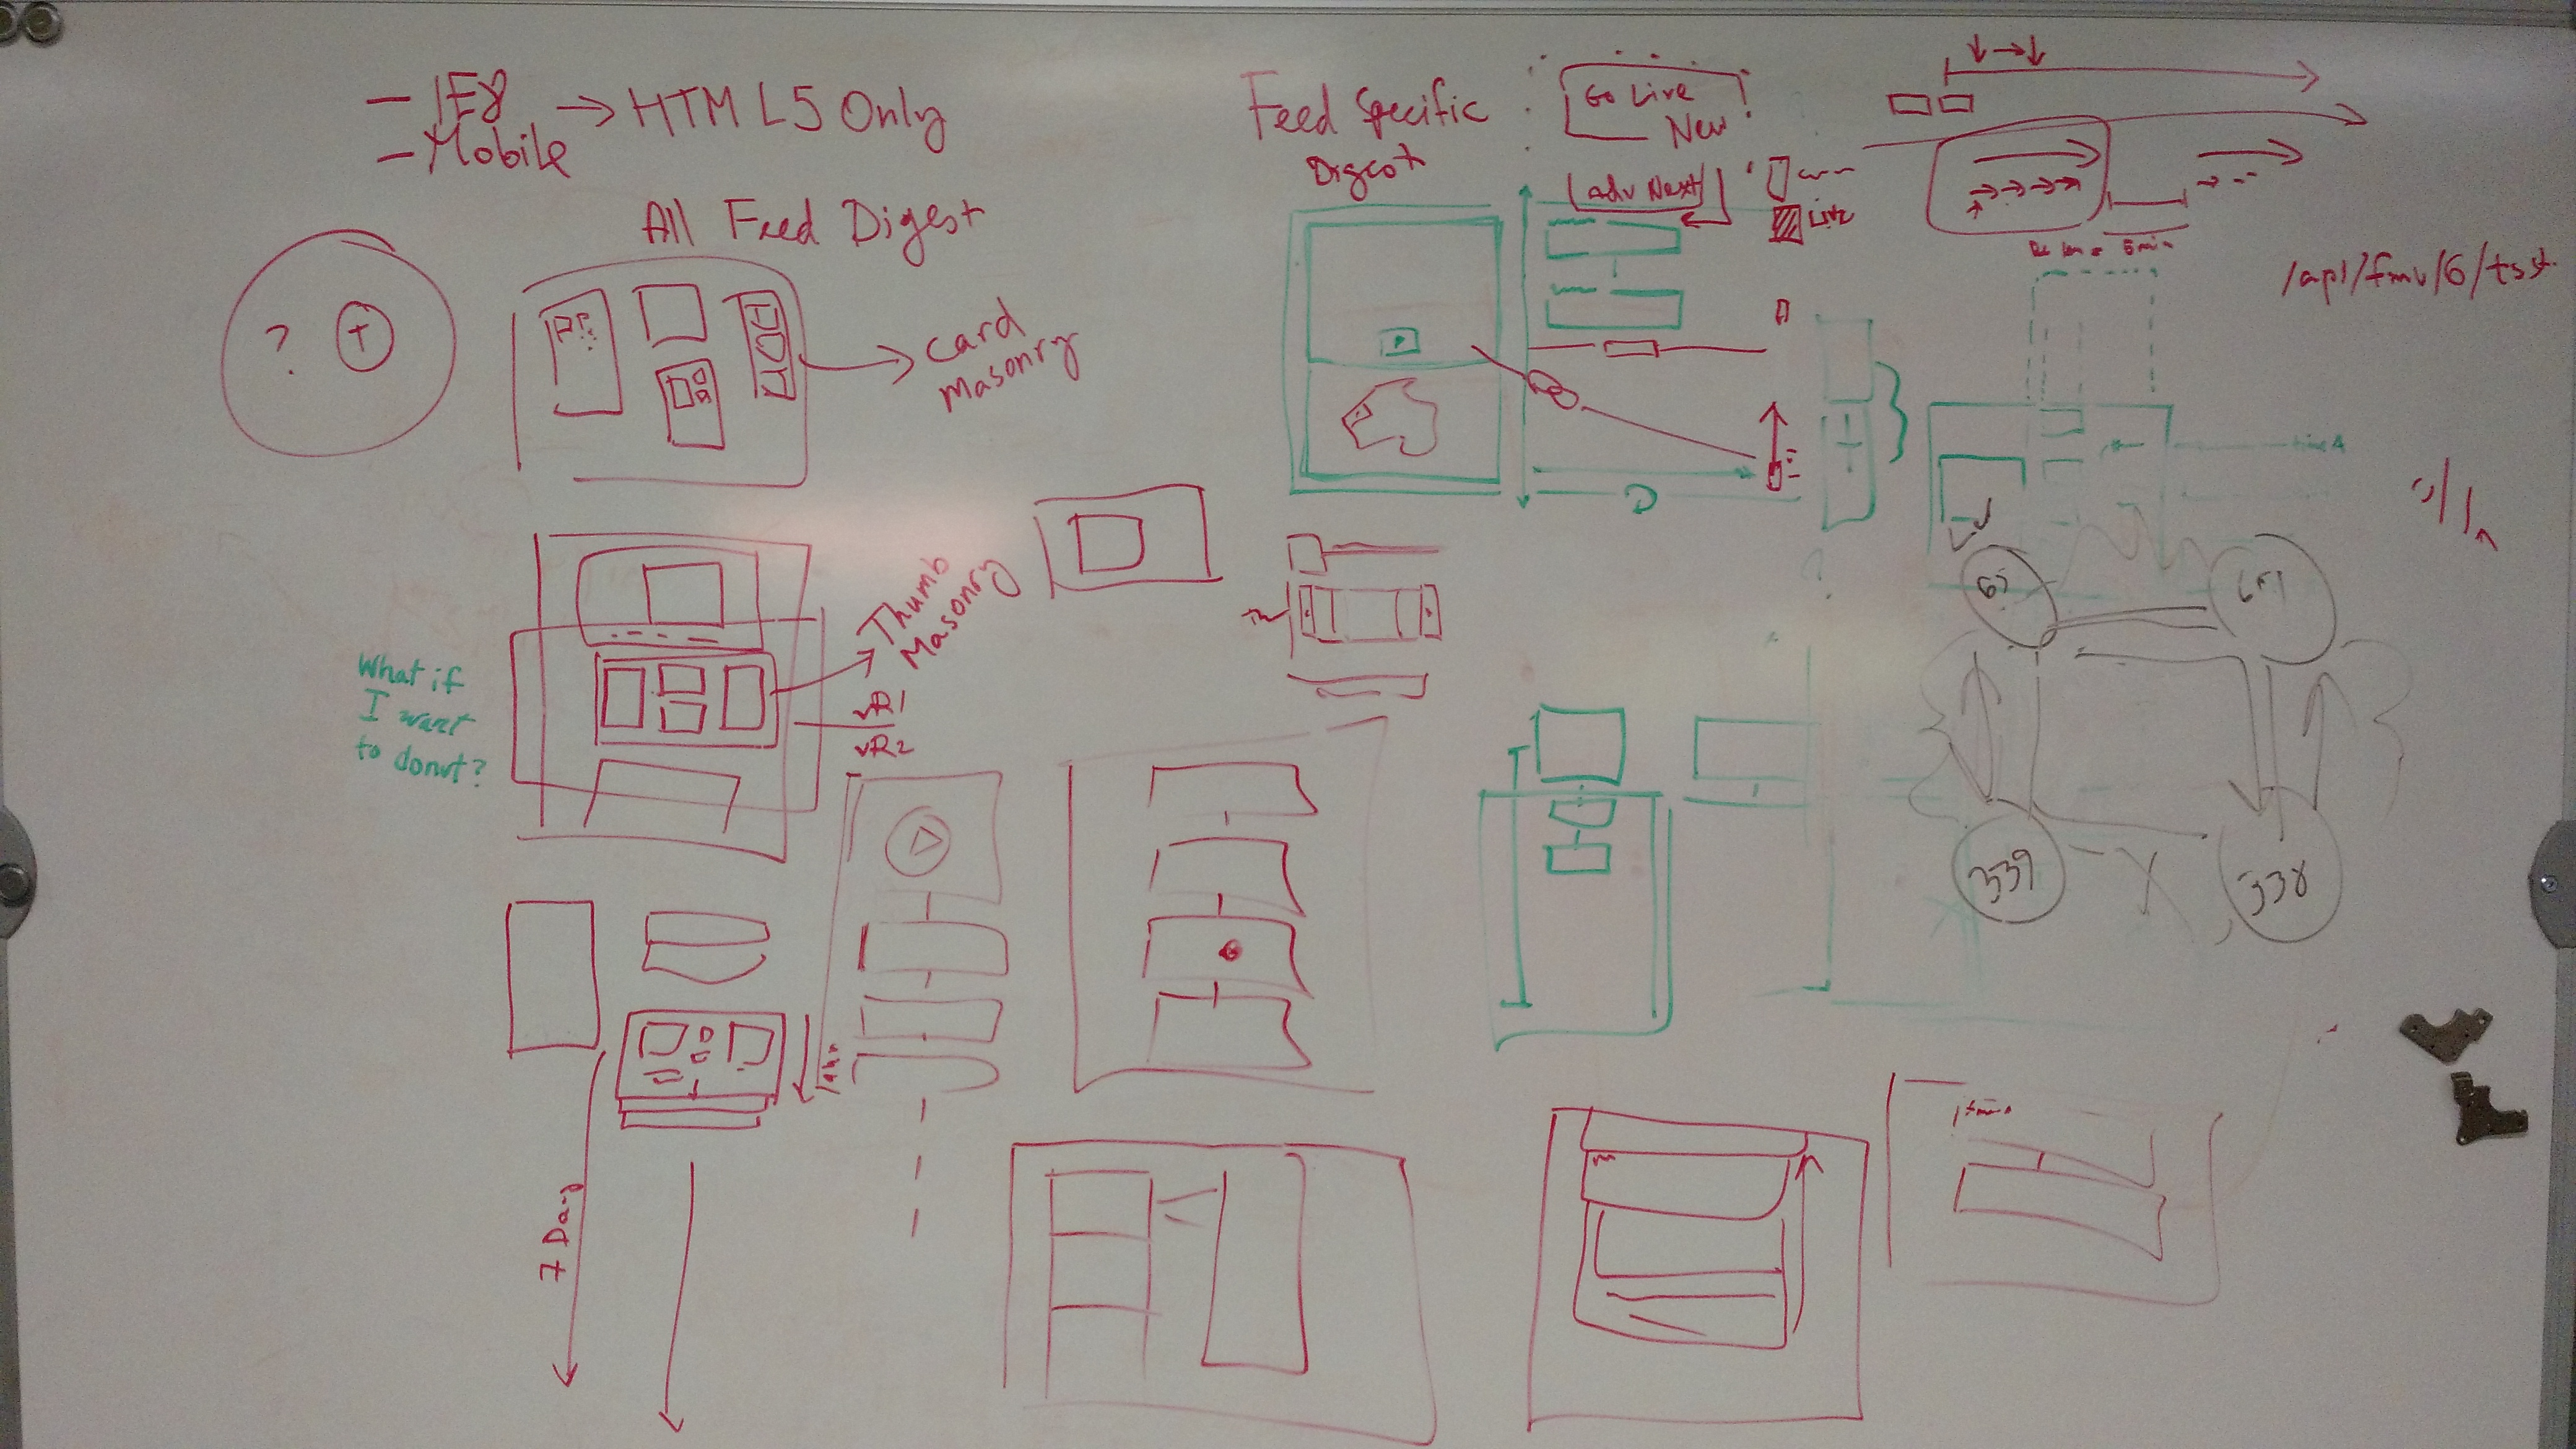 – IE8
– Mobile → HTML5 Only
All Feed Digest
? +
Card
Masonry
Thumb
Masonry
VR1
VR2
What if
I want
to donut?
7 Day
Feed Specific
Digest
Go Live
New!
adv Next
Live
D
5min
339
338